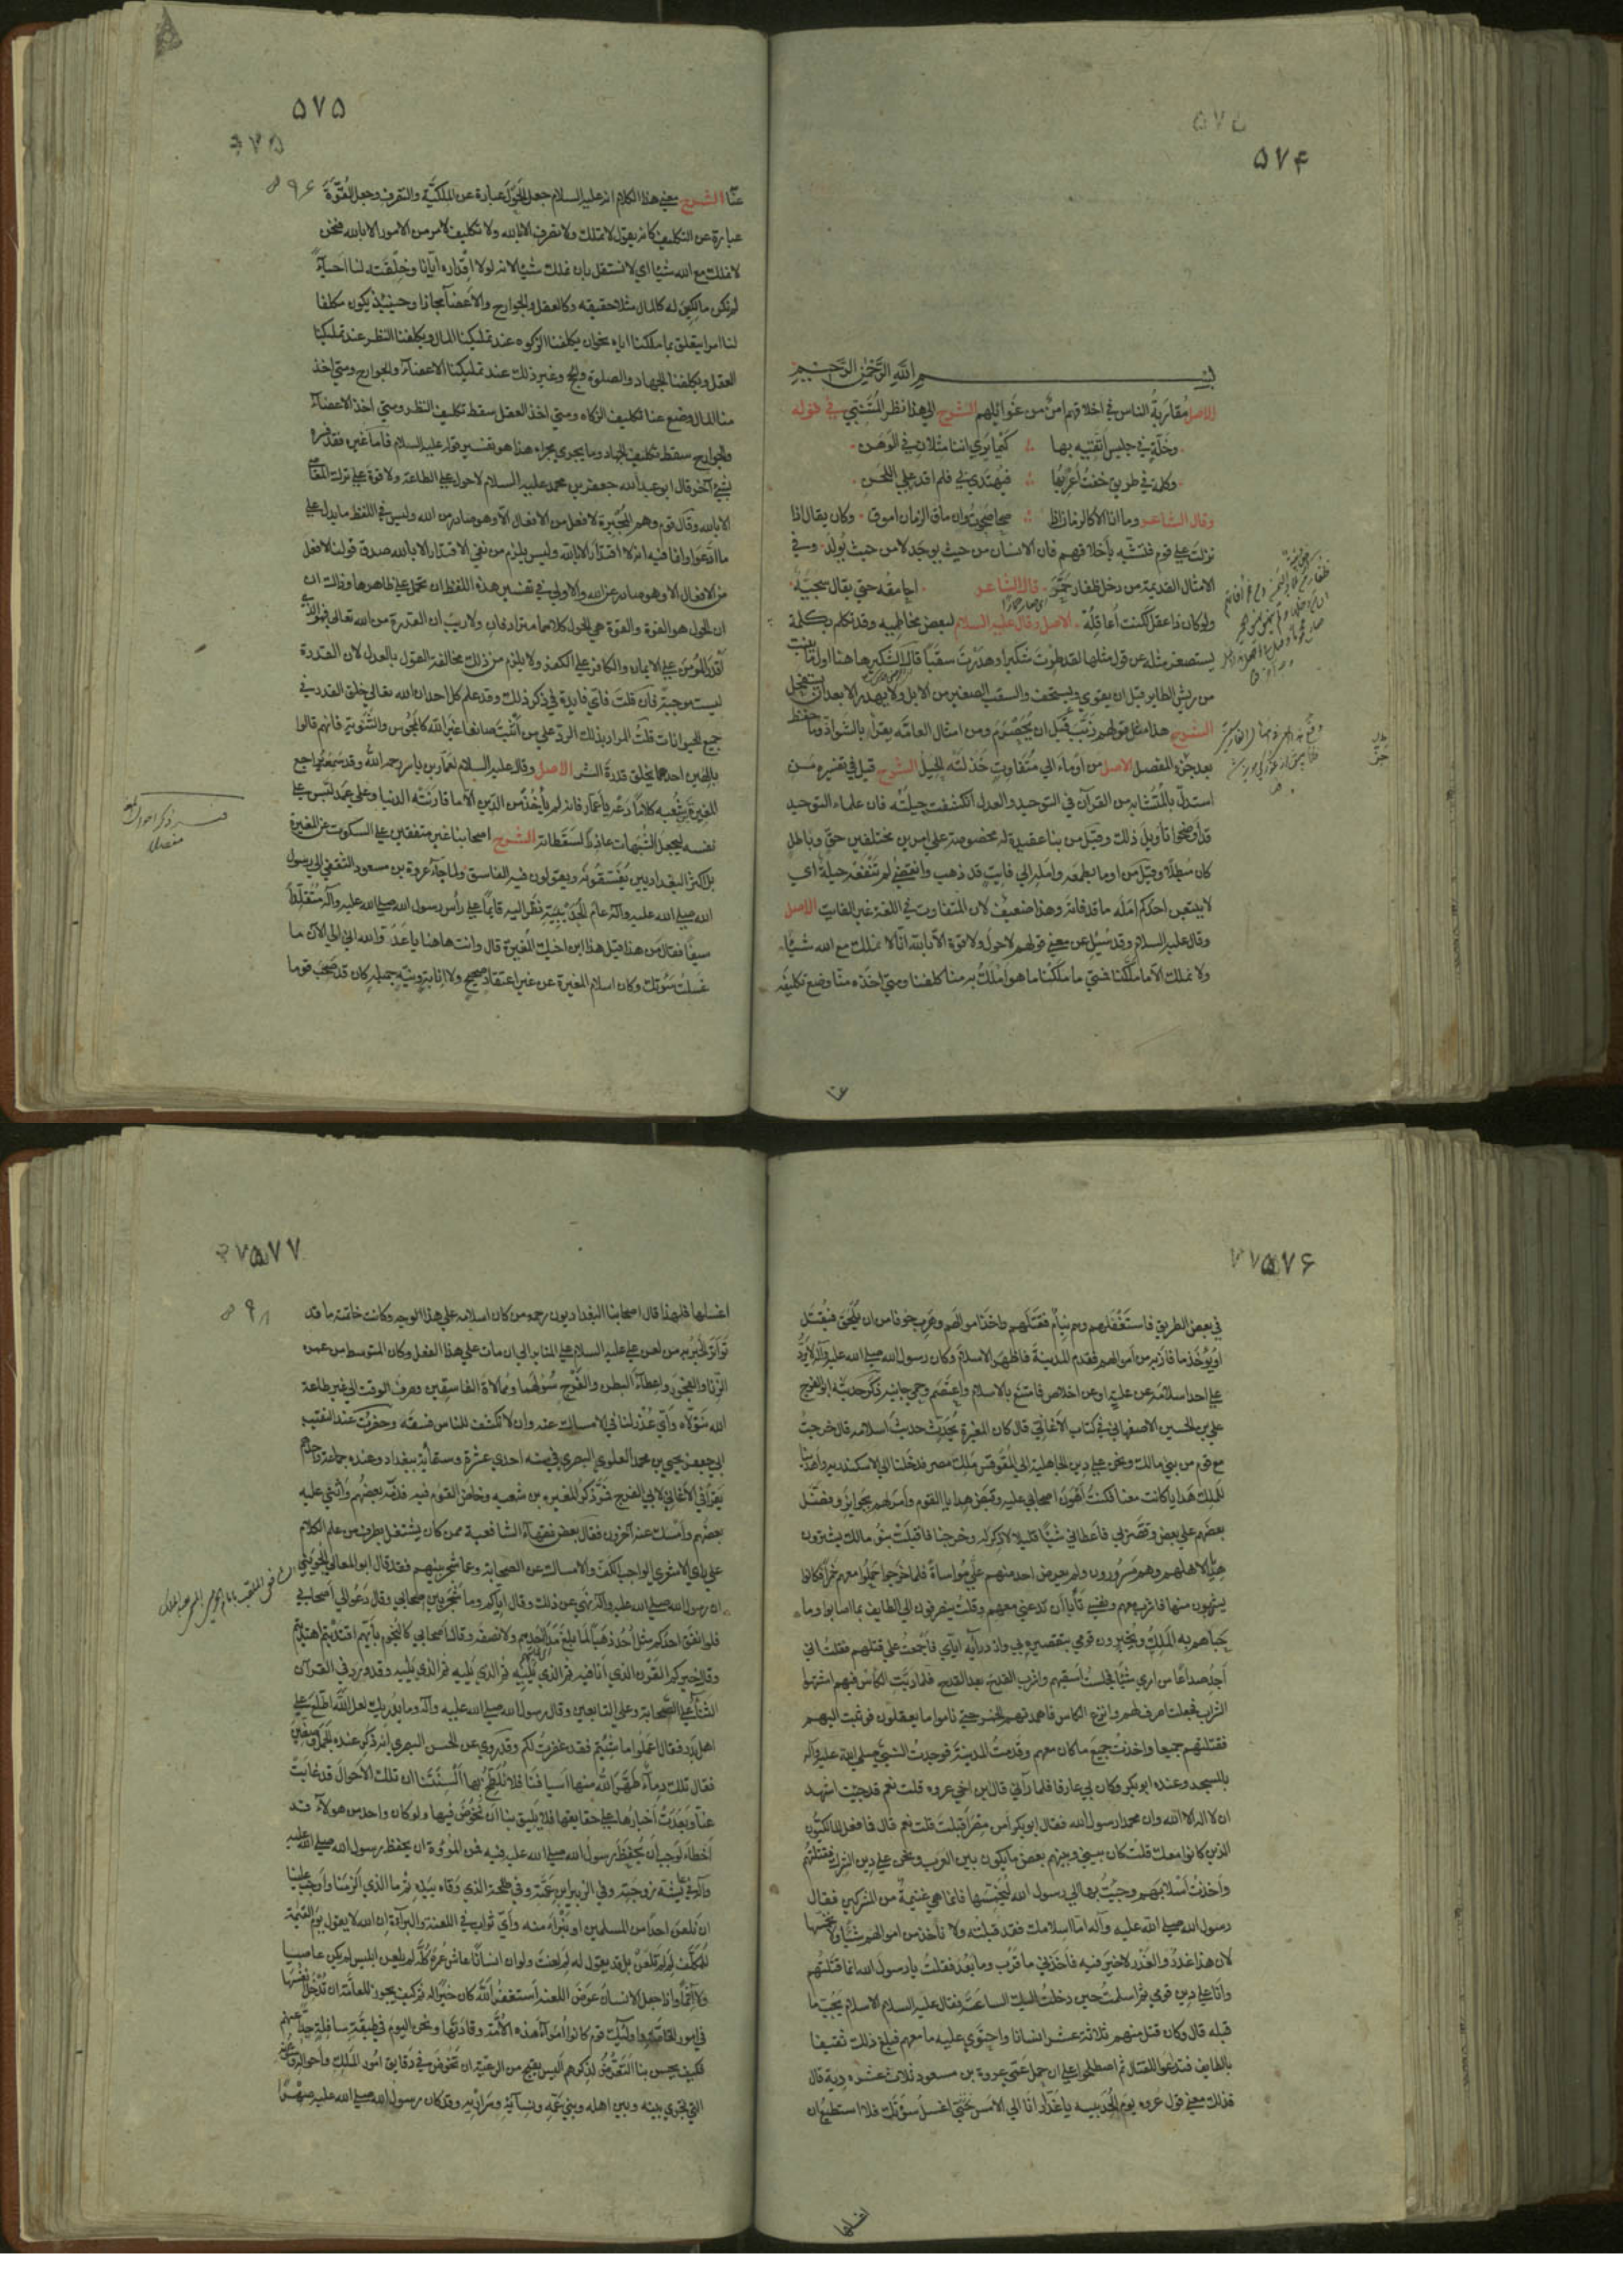 ۵۷۴
بسم الله الرحمن الرحیم
الاصل مقاربة الناس في اخلاقهم امن من غوائلهم الشرح الی هذا نظر المتنبي في قوله
وخلة في جليس اتقيه بها ∴ كيما يری اننا مثلان في الوهن
وكلمة في طريق خفت اعربها ∴ فيهتدی لي فلم اقدر علی اللحن
وقال الشاعر وما انا الا كالزمان اذا ∴ صحا صحوت وان ماق الزمان اموق وكان يقال اذا
نزلت علی قوم فتشبه باخلاقهم فان الانسان من حيث يوجد لا من حيث يولد وفي
الامثال القديمة من دخل ظفار حمر قال الشاعر احامقه حتی يقال سجية
ولو كان ذا عقل لكنت اعاقله الاصل وقال عليه السلام لبعض مخاطبيه وقد تكلم بكلمة
يستصغر مثله عن قول مثلها لقد طرت شكيرا وهدرت سقبا قال الشكير هاهنا اول ما ينبت
من ريش الطاير قبل ان يقوي ويستحصف والسقب الصغير من الابل ولا يهدر الا بعد ان يستفحل
الشرح هذا مثل قولهم زبب قبل ان يحصرم ومن امثال العامة يقرأ بالشواذ وما حفظ
بعد جزء المفصل الاصل من اوماء الی متفاوت خذلته الحيل الشرح قيل في تفسيره من
استدل بالمتشابه من القرآن في التوحيد والعدل انكشفت حيلته فان علماء التوحيد
قد اوضحوا تأويل ذلك وقيل من بنا عقيدة له مخصوصة علی امرين مختلفين حق وباطل
كان مبطلا وقيل من اوما بطمعه وامله الی فايت قد ذهب وانقضی لم تنفعه حيلة اي
لا يتبعن احدكم امله ما قد فاته وهذا ضعيف لان المتفاوت في اللغة غير الفايت الاصل
وقال عليه السلام وقد سئل عن معنی قولهم لا حول ولا قوة الا بالله انا لا نملك مع الله شيئا
ولا نملك الا ما ملكنا فمتی ما ملكنا ما هو املك به منا كلفنا ومتی اخذه منا وضع تكليفه
عنا
۵۷۵
عنا الشرح معنی هذا الكلام انه عليه السلام جعل الحول عبارة عن الملكية والتصرف وجعل القوة
عبارة عن التكليف كانه يقول لا تملك ولا تصرف الا بالله ولا تكليف لامر من الامور الا بالله فنحن
لا نملك مع الله شيئا اي لا نستقل بان نملك شيئا لانه لولا اقداره ايانا وخلقته لنا احياء
لم نكن مالكين له كالمال مثلا حقيقة وكالعقل والجوارح والاعضاء مجازا وحينئذ يكون مكلفا
لنا امرا يتعلق بما ملكنا اياه نحو ان يكلفنا الزكوة عند تمليكنا المال ويكلفنا النظر عند تمليكنا
العقل ويكلفنا الجهاد والصلوة والحج وغير ذلك عند تمليكنا الاعضاء والجوارح ومتی اخذ
منا المال وضع عنا تكليف الزكاة ومتی اخذ العقل سقط تكليف النظر ومتی اخذ الاعضاء
والجوارح سقط تكليف الجهاد وما يجري مجراه هذا هو تفسير قوله عليه السلام فاما غيره فقد فسره
بشئ آخر قال ابو عبدالله جعفر بن محمد عليه السلام لا حول علی الطاعة ولا قوة علی ترك المعاصي
الا بالله وقال قوم وهم المجبرة لا فعل من الافعال الا وهو صادر من الله وليس في اللفظ ما يدل علی
ما ادعوا وانما فيه انه لا اقتدار الا بالله وليس يلزم من نفي الاقتدار الا بالله صدق قولنا لا فعل
من الافعال الا وهو صادر عن الله والاولی في تفسير هذه اللفظة ان تحمل علی ظاهرها وذلك ان
ان الحول هو القوة والقوة هي الحول كلاهما مترادفان ولا ريب ان القدرة من الله تعالی فهو الذي
اقدر المؤمن علی الايمان والكافر علی الكفر ولا يلزم من ذلك مخالفة القول بالعدل لان القدرة
ليست موجبة فان قلت فاي فايدة في ذكر ذلك وقد علم كل احد ان الله تعالی خلق القدرة في
جميع الحيوانات قلت المراد بذلك الرد علی من اثبت صانعا غير الله كالمجوس والثنوية فانهم قالوا
بالهين احدهما يخلق قدرة الشر الاصل وقال عليه السلام لعمار بن ياسر رحمه الله وقد سمعه يراجع
المغيرة بن شعبه كلاما دعه يا عمار فانه لم يأخذ من الدين الا ما قاربته الدنيا وعلی عمد لبس علی
نفسه ليجعل الشبهات عاذرا لسقطاته الشرح اصحابنا غير متفقين علی السكوت عن المغيرة
بل اكثر البغداديين يفسقونه ويقولون فيه الفاسق ولما جاء عروة بن مسعود الثقفي الی رسول
الله صلی الله عليه وآله عام الحديبية نظر اليه قائما علی رأس رسول الله صلی الله عليه وآله متقلدا
سيفا فقال من هذا قيل هذا ابن اخيك المغيرة قال وانت هاهنا يا غدر والله اني الی الان ما
غسلت سوتك وكان اسلام المغيرة عن غير اعتقاد صحيح ولا انابة ونية جميلة كان قد صحب قوما
۵۷۶
في بعض الطريق فاستغفلهم وهم نيام فقتلهم واخذ اموالهم وهرب خوفا من ان يلحق فيقتل
او يوخذ ما فاز به من اموالهم فقدم المدينة فاظهر الاسلام وكان رسول الله صلی الله عليه وآله لا يرد
علی احد اسلامه عن علة او عن اخلاص فامتنع بالاسلام واعتصم وحمي جانبه ذكر حديثه ابو الفرج
علي بن الحسين الاصفهاني في كتاب الاغاني قال كان المغيرة يحدث حديث اسلامه قال خرجت
مع قوم من بني مالك ونحن علی دين الجاهلية الی المقوقس ملك مصر فدخلنا الی الاسكندرية واهدينا
للملك هدايا كانت معنا فكنت اهون اصحابي عليه وقبض هدايا القوم وامر لهم بجوايز وفضل
بعضهم علی بعض وقصر بي فاعطاني شيئا قليلا لا ذكر له وخرجنا فاقبلت بنو مالك يشترون
هدايا لاهلهم وهم مسرورون ولم يعرض احد منهم علي مواساة فلما خرجوا حملوا معهم خمرا فكانوا
يشربون منها فاشرب معهم ونفسي تأبا ان تدعني معهم وقلت ينصرفون الی الطايف بما اصابوا وما
حباهم به الملك ويخبرون قومي بتقصيره بي وازدرايه اياي فاجمعت علی قتلهم فقلت اني
اجد صداعا فجلست اسقيهم واشرب القدح بعد القدح فلما دبت الكاس فيهم اشتهوا
الشراب فجعلت اصرف لهم وانزع الكاس فاهمدتهم الخمر حتی ناموا ما يعقلون فوثبت اليهم
فقتلتهم جميعا واخذت جميع ما كان معهم وقدمت المدينة فوجدت النبي صلی الله عليه وآله
بالمسجد وعنده ابو بكر وكان بي عارفا فلما رآني قال ابن اخي عروه قلت نعم قد جئت اشهد
ان لا اله الا الله وان محمدا رسول الله فقال ابو بكر أمن مصر اقبلت قلت نعم قال فما فعل المالكيون
الذين كانوا معك قلت كان بيني وبينهم بعض ما يكون بين العرب ونحن علی دين الشرك فقتلتهم
واخذت اسلابهم وجئت بها الی رسول الله ليخمسها فانما هي غنيمة من المشركين فقال
رسول الله صلی الله عليه وآله اما اسلامك فقد قبلته ولا نأخذ من اموالهم شيئا ولا نخمسها
لان هذا غدر والغدر لا خير فيه فاخذني ما قرب وما بعد فقلت يا رسول الله انما قتلتهم
وانا علی دين قومي ثم اسلمت حين دخلت اليك الساعة فقال عليه السلام الاسلام يجب ما
قبله قال وكان قتل منهم ثلاثة عشر انسانا واحتوی عليه ما معهم فبلغ ذلك ثقيفا
بالطايف فتداعوا للقتال ثم اصطلحوا علی ان حمل عمي عروة بن مسعود ثلاث عشره دية قال
فذلك معنی قول عروه يوم الحديبية يا غدر انا الی الامس اغسل سوتك فلا استطيع ان
اغسلها
۵۷۷
اغسلها فلهذا قال اصحابنا البغداديون رحمه من كان اسلامه علی هذا الوجه وكانت خاتمته ما قد
تواتر الخبر به من لعن علي عليه السلام علی المنابر الی ان مات علی هذا الفعل وكان المتوسط من عمره
الزنا والفجور واعطاء البطن والفرج سؤلهما وممالاة الفاسقين وصرف الوقت الی غير طاعة
الله نتولاه واي عذر لنا في الامساك عنه وان لا نكشف للناس فسقه وحضرت عند النقيب
ابي جعفر يحيی بن محمد العلوي البصري في سنه احدی عشرة وستمائة ببغداد وعنده جماعة واحدهم
يقرأ في الاغاني لابي الفرج فمر ذكر المغيره بن شعبه وخاض القوم فيه فذمه بعضهم واثنی عليه
بعضهم وامسك عنه آخرون فقال بعض فقهاء الشافعية ممن كان يشتغل بطرف من علم الكلام
علی رأي الاشعري الواجب الكف والامساك عن الصحابة وعما شجر بينهم فقد قال ابو المعالي الجويني
ان رسول الله صلی الله عليه وآله نهی عن ذلك وقال اياكم وما شجر بين صحابي وقال دعوا لي اصحابي
فلو انفق احدكم مثل احد ذهبا لما بلغ مد احدهم ولا نصفه وقال اصحابي كالنجوم بايهم اقتديتم اهتديتم
وقال خيركم القرن الذي انا فيه ثم الذي يليه ثم الذي يليه ثم الذي يليه وقد ورد في القرآن
الثناء علی الصحابة وعلی التابعين وقال رسول الله صلی الله عليه وآله وما يدريك لعل الله اطلع علی
اهل بدر فقال اعملوا ما شئتم فقد غفرت لكم وقد روي عن الحسن البصري انه ذكر عنده الجمل وصفين
فقال تلك دماء طهر الله منها اسيافنا فلا نلطخ بها السنتنا ان تلك الاحوال قد غابت
عنا وبعدت اخبارها علی حقايقها فلا يليق بنا ان نخوض فيها ولو كان واحد من هولاء قد
اخطاء لوجب ان يحفظ رسول الله صلی الله عليه فيه فمن المروة ان يحفظ رسول الله صلی الله عليه
وآله في عايشة زوجته وفي الزبير ابن عمته وفي طلحة الذي وقاه بيده ثم ما الذي الزمنا واوجب علينا
ان نلعن احدا من المسلمين او نبراء منه واي ثواب في اللعنة والبراءة ان الله لا يقول يوم القيمة
للمكلف لم لم تلعن بل قد يقول له لم لعنت ولو ان انسانا عاش عمره كله لم يلعن ابليس لم يكن عاصيا
ولا آثما واذا جعل الانسان عوض اللعنة استغفر الله كان خيرا له ثم كيف يجوز للعامة ان تدخل نفسها
في امور الخاصة واولئك قوم كانوا امراء هذه الامة وقادتها ونحن اليوم في طبقة سافلة جدا عنهم
فكيف يحسن بنا التعرض لذكرهم اليس يقبح من الرعية ان تخوض في دقايق امور الملك واحواله وشئونه
التي تجري بينه وبين اهله وبني عمه ونسائه وسراريه وقد كان رسول الله صلی الله عليه صهرا